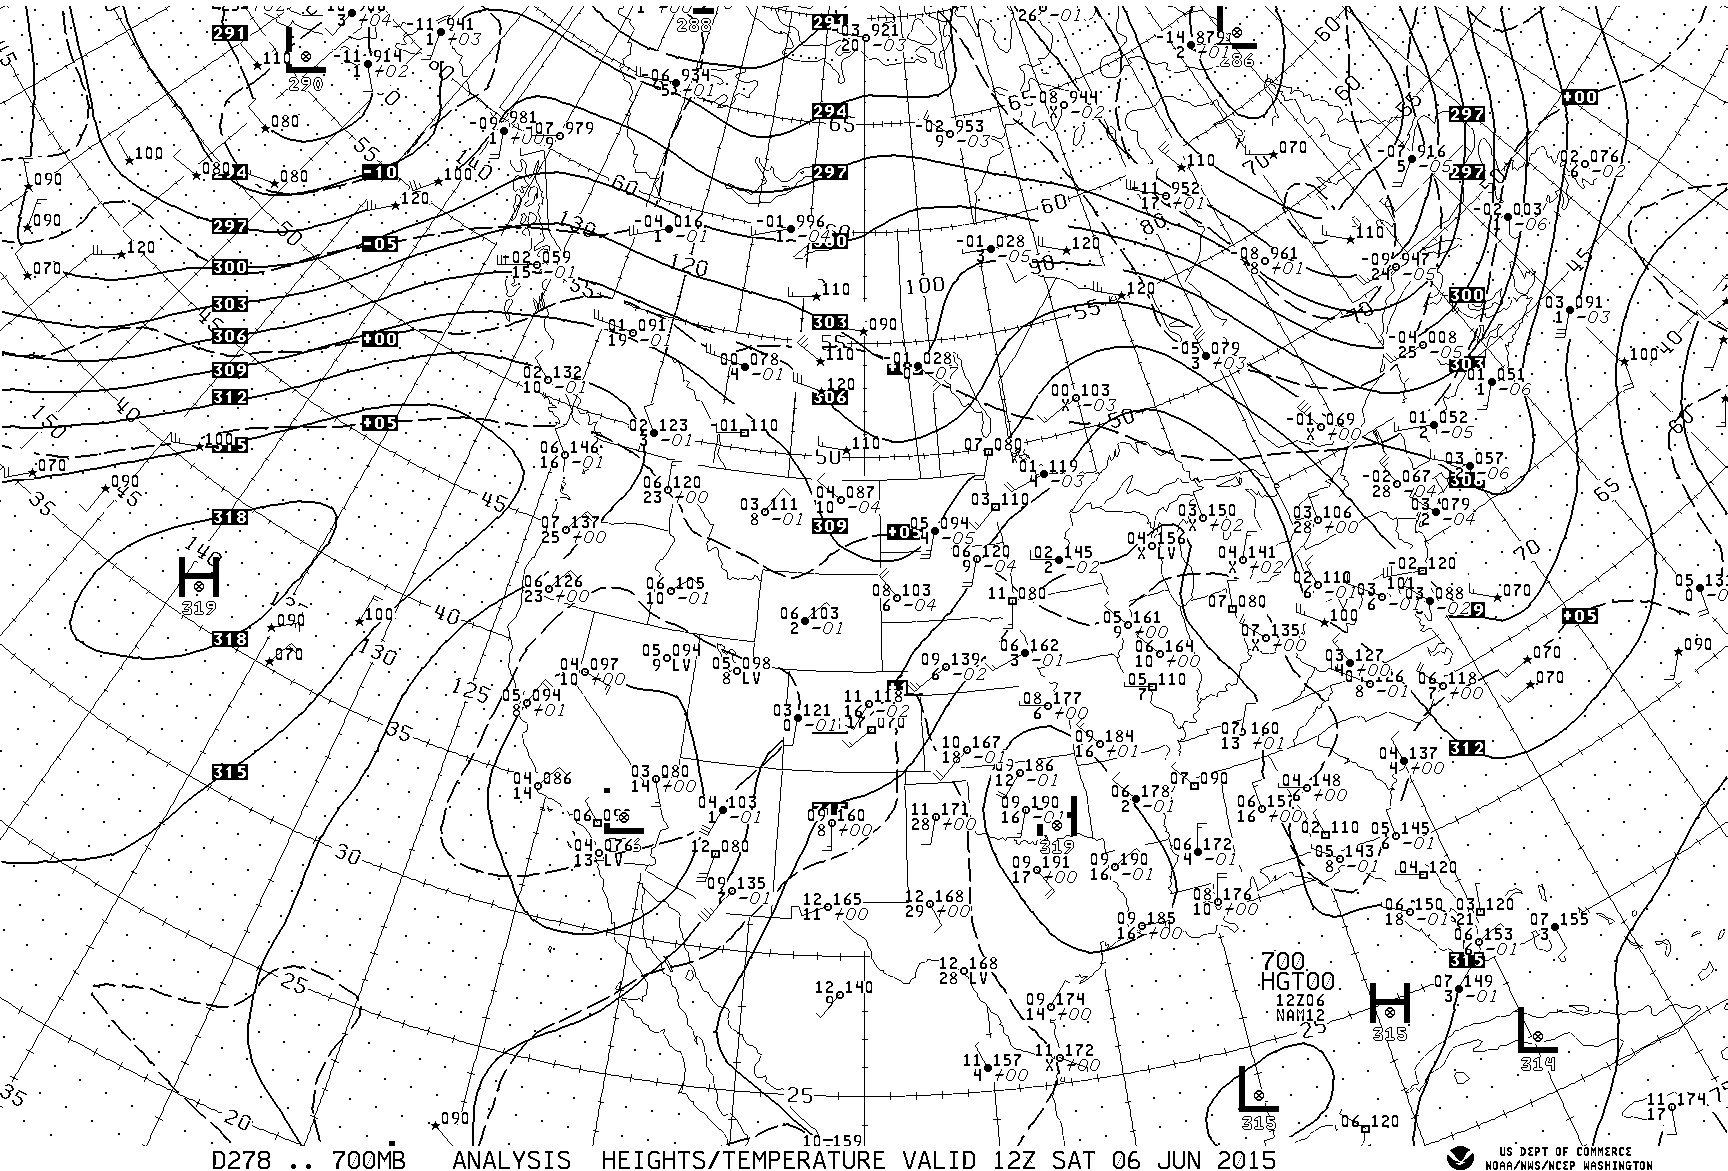 291
290
-11 914
1 +02
-11 941
1 -03
110
080
288
-06 934
-5 -01
291
-03 921
20 -03
26 -01
-14 879
2 +01
286
60
60
55
+00
297
-09 981
1 +00
-07 979
294
65
-02 953
9 -03
65
-08 944
X -02
070
70
-07 916
5 -05
02 076
6 -02
100
55
140
080
080
-10
100
090
60
297
110
-11 952
17 +01
297
-02 003
1 -06
120
130
297
090
50
-04 016
1 -01
-01 996
60
80
110
120
-05
300
-02 059
15 -01
120
-01 028
3 -05
120
90
-08 961
8 +01
-09 947
24 -05
45
070
303
45
55
110
100
120
300
03 091
1 -03
306
+00
01 091
19 -01
303
090
55
70
-04 008
25 -05
303
40
309
02 132
10 -01
00 078
4 -01
110
-01 028
-07
-05 079
3 +03
01 051
1 -06
100
312
40
120
306
00 103
X -03
150
+05
02 123
3 -01
-01 110
50
-01 069
X +00
01 052
2 -05
60
100
315
06 146
16 -01
110
50
07 080
01 119
4 -03
03 057
-06
070
45
090
45
06 120
23 +00
04 087
10 -04
-02 067
28 -04
306
65
35
318
07 137
25 +00
03 111
8 -01
309
+05
05 094
4 -05
03 110
03 150
X +02
03 106
28 +00
03 079
2 -04
140
06 120
9 -04
02 145
2 -02
04 156
X LV
04 141
X +02
70
H
319
06 126
23 +00
06 105
10 -01
08 103
6 -04
11 080
02 110
6 -01
03 101
6 -01
-02 120
088
-02
070
05 131
0
318
090
100
40
06 103
2 -01
05 161
9 +00
07 080
100
+05
070
130
05 094
9 LV
05 098
8 LV
09 139
6 -02
06 162
3 -01
06 164
10 +00
07 135
X +00
03 127
4 +00
070
090
125
04 097
10 +00
05 094
8 +01
11 118
16 -02
08 177
6 +00
05 110
7
06 118
7 +00
070
35
03 121
0 -01
17 070
10 167
18 -01
09 184
16 +01
07 160
13 +01
312
315
04 086
14
03 080
14 +00
09 186
12 -01
07 090
04 148
16 +00
04 137
4 +00
04 103
1 -01
09 160
8 +00
11 171
28 +00
09 190
16 -01
319
06 178
2 -01
06 157
16 +00
02 110
05 145
6 -01
30
04 076
13 LV
12 080
09 191
17 +00
09 190
16 -01
06 172
4 -01
05 143
8 -01
04 120
09 135
2 -01
12 165
11 +00
12 168
29 +00
08 176
10 +00
06 150
18 -01
03 120
21
09 185
16 +00
06 153
6 -01
07 155
3
315
25
12 168
28 LV
700
HGT00
07 149
3 -01
12 140
9
09 174
14 +00
12Z06
NAM12
H
315
25
L
314
11 157
4 +00
11 172
X +00
35
20
090
25
L
315
06 120
11 174
17
10 159
D278 .. 700MB ANALYSIS HEIGHTS/TEMPERATURE VALID 12Z SAT 06 JUN 2015
US DEPT OF COMMERCE
NOAA/NWS/NCEP WASHINGTON